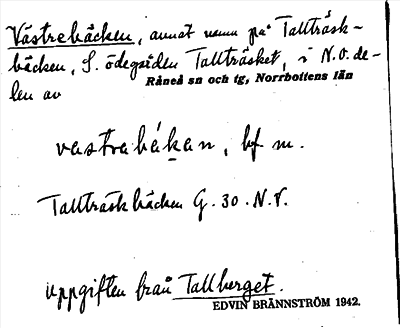 Västrebäcken, annat namn på Tallträsk-
bäcken, S. ödegården Tallträsket, i N.O. de-
Råneå sn och tg, Norrbottens län
len av
vastrabákan, bf m.
Tallträskbäcken G. 30. N.V.
uppgiften från Tallberget.
EDVIN BRÄNNSTRÖM 1942.